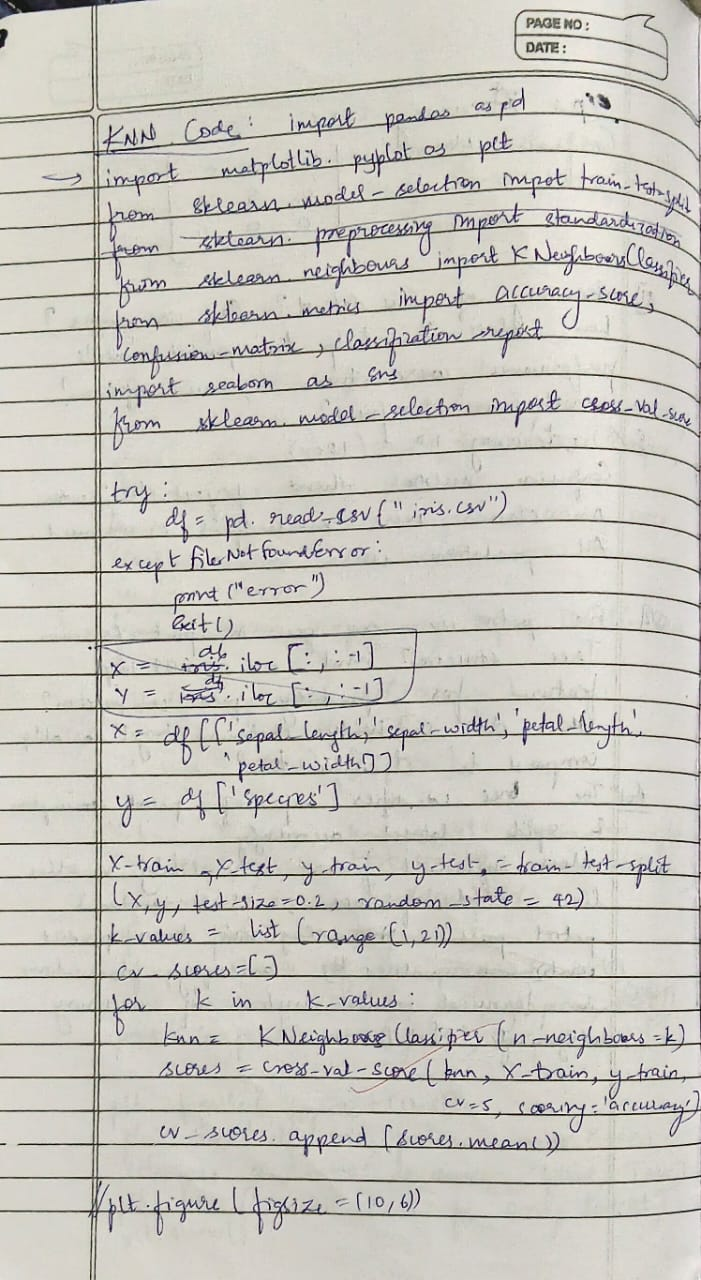 PAGE NO:
DATE:
KNN Code: import pandas as pd
→ import matplotlib.pyplot as plt
from sklearn.model-selection impot train-test-split
from sklearn.preprocessing import standardization
from sklearn.neighbours import KNeighboursClassifier
from sklearn.metrics import accuracy-score,
confusion-matrix, classification-report
import seaborn as sns
from sklearn.model-selection import cross-val-score
try:
df = pd.read-csv("iris.csv")
except fileNotfoundError:
print ("error")
exit()
X = iris df.iloc [:,:-1]
Y = iris df.iloc [:,:-1]
X = df[['sepal-length','sepal-width','petal-length',
'petal-width]]
y = df ['species']
X-train, X-test, y-train, y-test, = train-test-split
(X,y, test-size=0.2, random_state = 42)
k-values = list (range(1,21))
cv_scores=[]
for k in k-values:
knn = KNeighboursClassifier (n-neighbours=k)
scores = cross-val-score(knn, X-train, y-train,
cv=5, scoring='accuracy')
cv_scores.append(scores.mean())
//plt.figure (figsize = (10,6))